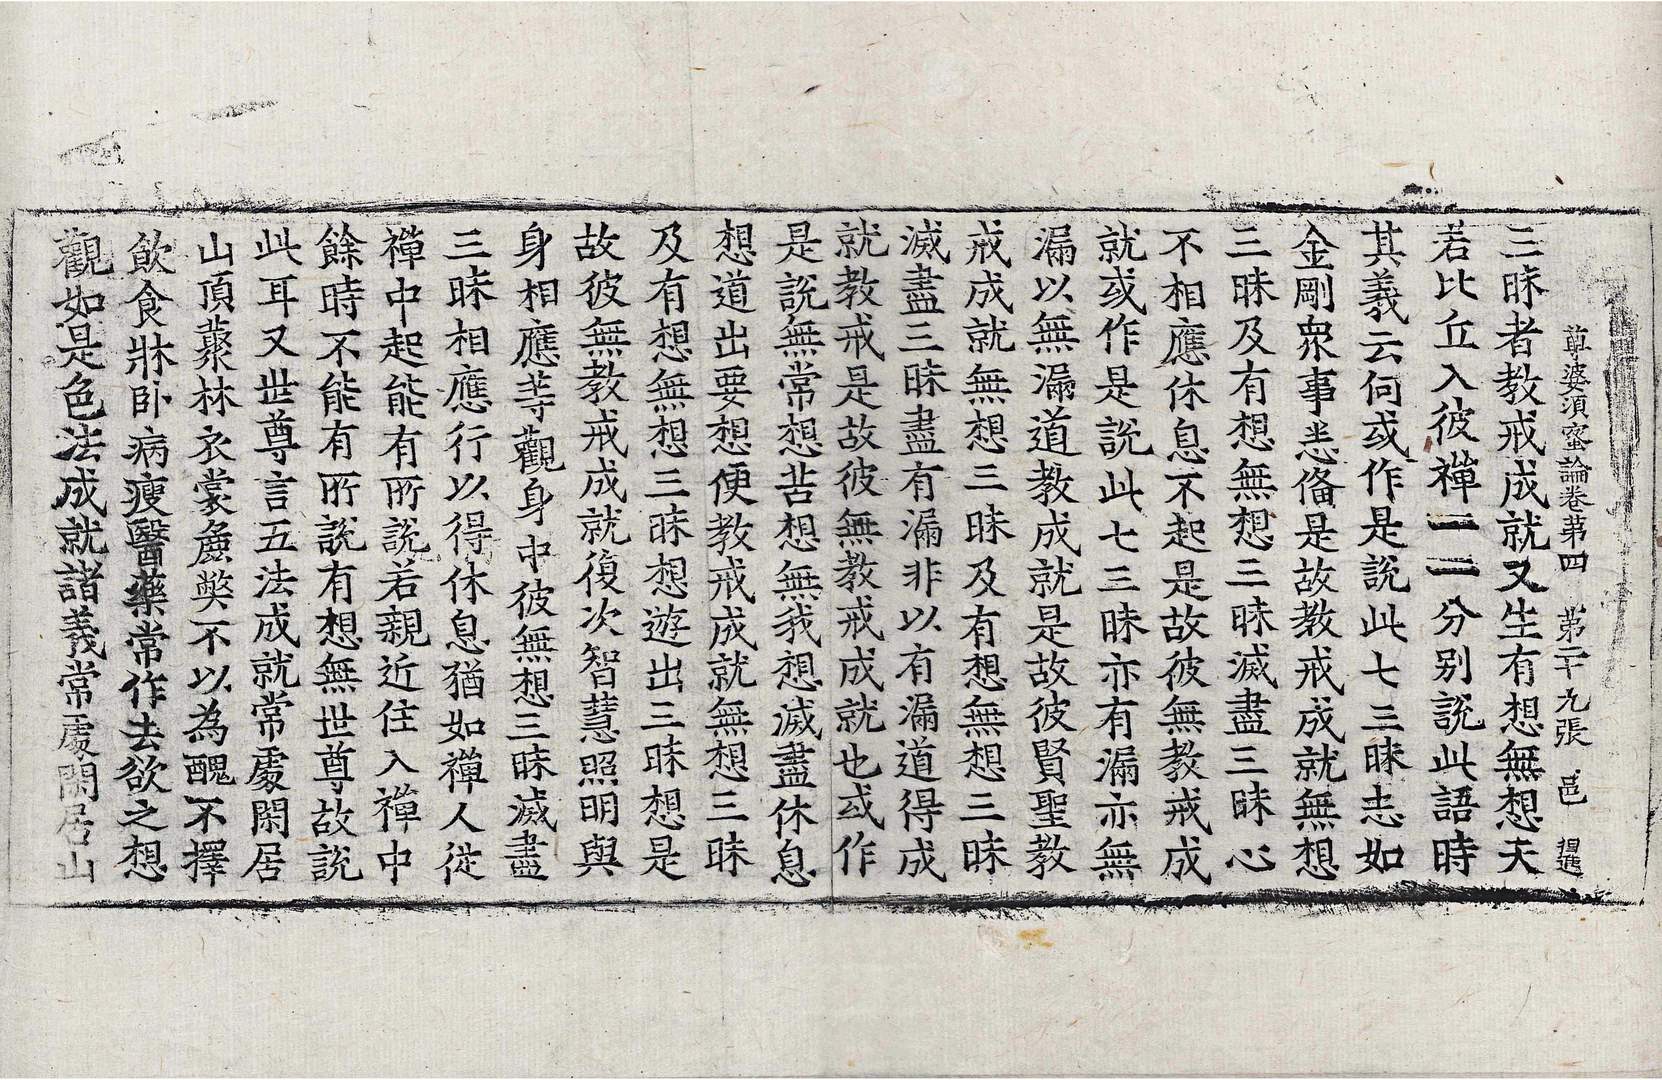 尊婆湏蜜論卷第四 第二十九張 邑
三昧者教戒成就又生有想無想天
若比丘入彼禪一一分别說此語時
其義云何或作是說此七三昧志如
金剛衆事悉俻是故教戒成就無想
三昧及有想無想三昧滅盡三昧心
不相應休息不起是故彼無教戒成
就或作是說此七三昧亦有漏亦無
漏以無漏道教成就是故彼賢聖教
戒成就無想三昧及有想無想三昧
滅盡三昧盡有漏非以有漏道得成
就教戒是故彼無教戒成就也或作
是說無常想苦想無我想滅盡休息
想道出要想便教戒成就無想三昧
及有想無想三昧想遊出三昧想是
故彼無教戒成就復次智慧照明與
身相應等觀身中彼無想三昧滅盡
三昧相應行以得休息猶如禪人從
禪中起能有所說若親近住入禪中
餘時不能有所說有想無世尊故說
此耳又世尊言五法成就常處閑居
山頂藂林衣裳麁弊不以為醜不擇
飲食牀卧病瘦醫藥常作去欲之想
觀如是色法成就諸義常處閑居山